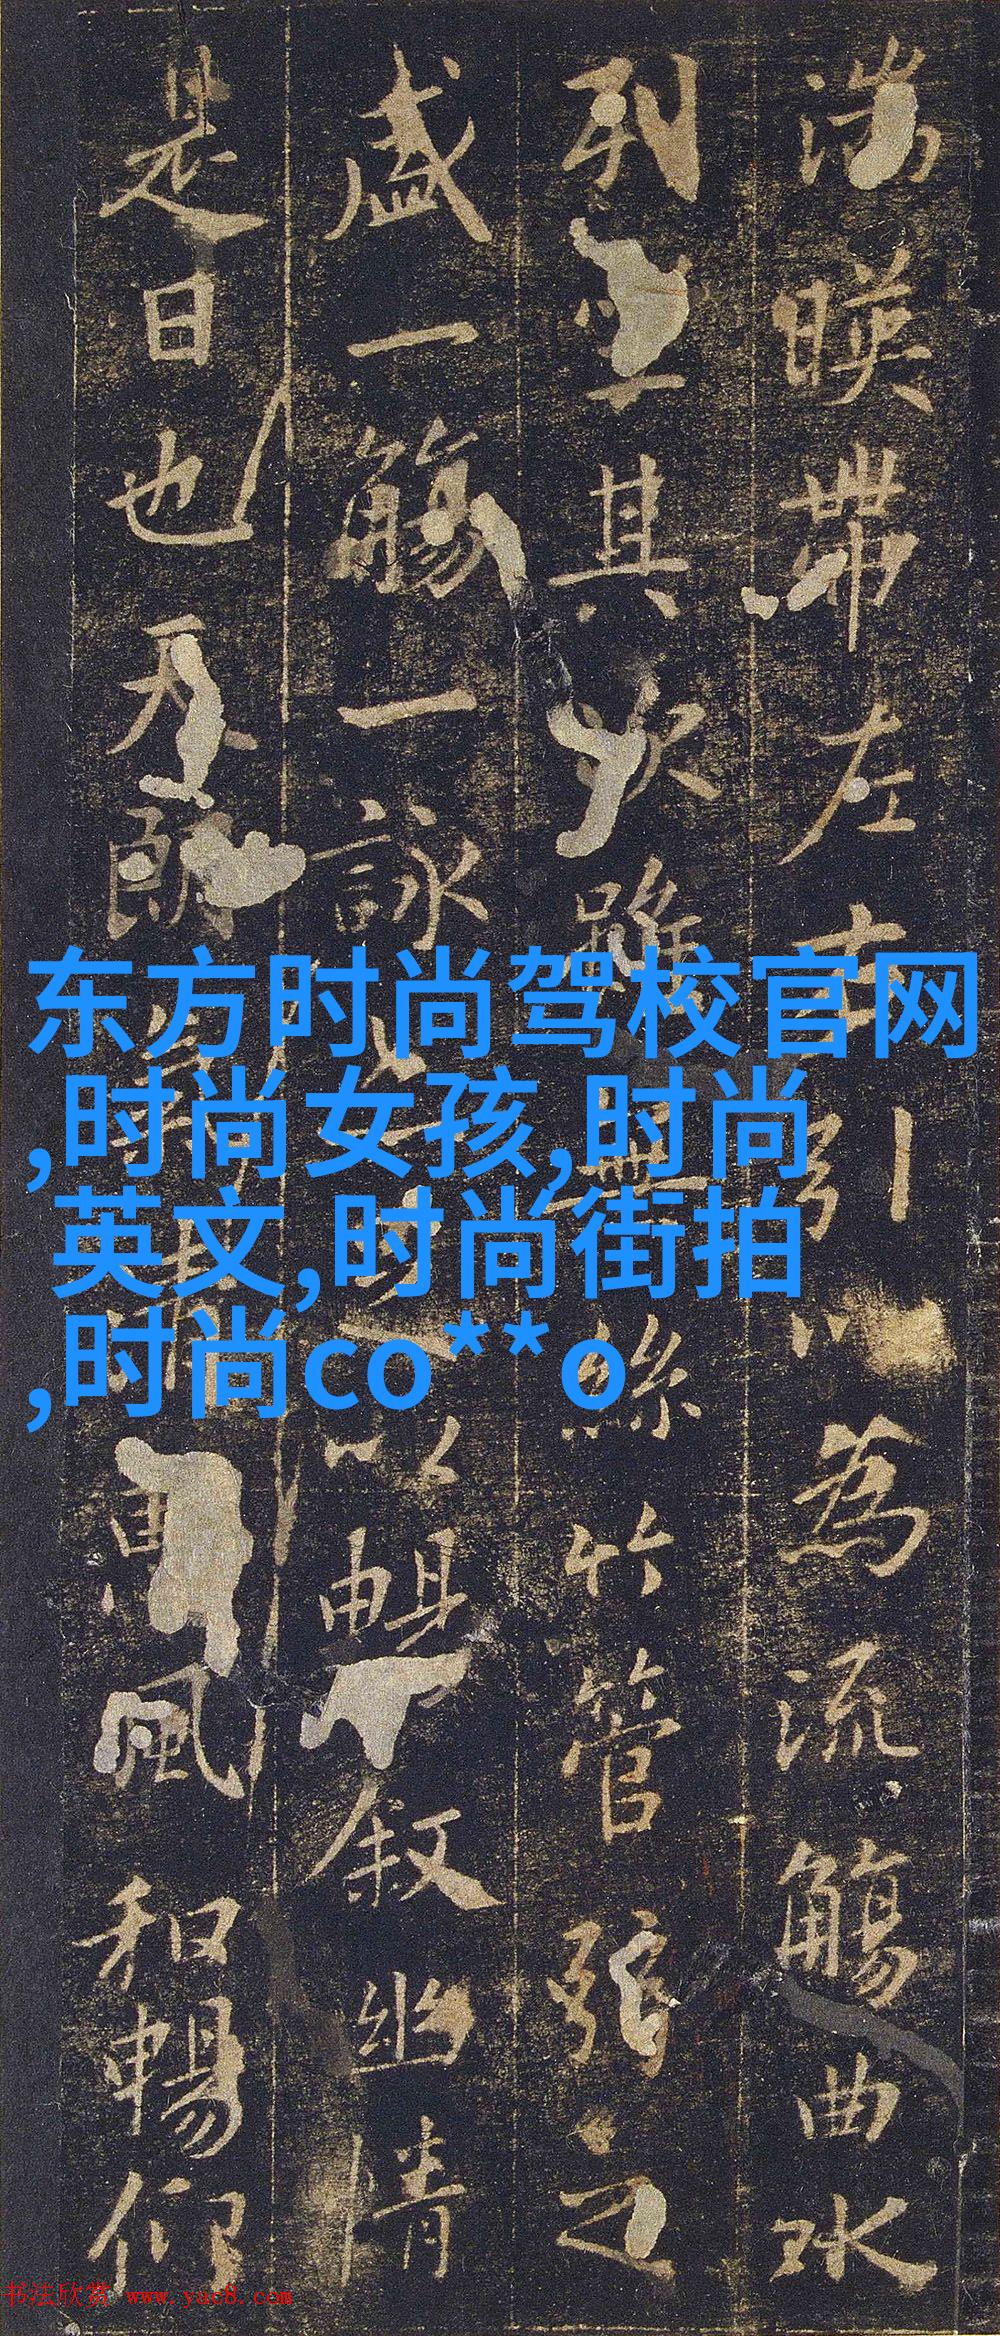 湍暎帶左右引以為流觴曲水
列坐其次雖無絲竹管弦之
盛一觴一詠亦足以暢敘幽情
是日也天朗氣清惠風和暢仰
东方时尚驾校官网
,时尚女孩,时尚
英文,时尚街拍
,时尚co**o
书法欣赏 www.yac8.com